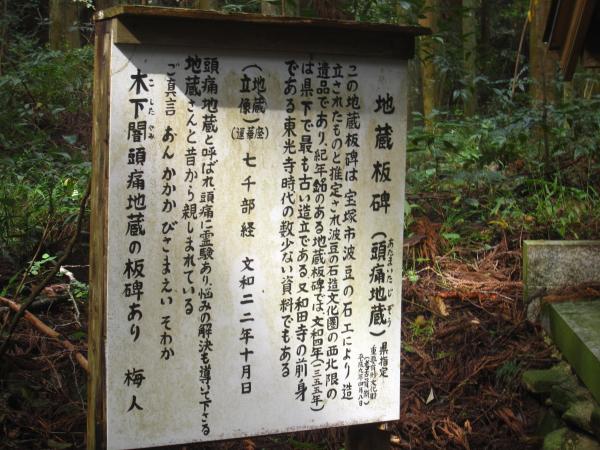 地蔵板碑(頭痛地蔵)
あたまいたじぞう
県指定
重要有形文化財
(考古資料)
平成九年四月八日
この地蔵板碑は、宝塚市波豆の石工により造
立されたものと推定され波豆の石造文化圏の西北限の
遺品であり、紀年銘のある地蔵板碑では、文和四年(一三五五年)
は県下で最も古い造立である又和田寺の前身
である東光寺時代の数少ない資料でもある
(地蔵立像)(蓮華座) 七千部経 文和二二年十月日
頭痛地蔵と呼ばれ頭痛に霊験あり悩みの解決も導いて下さる
地蔵さんと昔から親しまれている
ご真言 おん かかか びさまえい そわか
こした やみ
木下闇頭痛地蔵の板碑あり 梅人